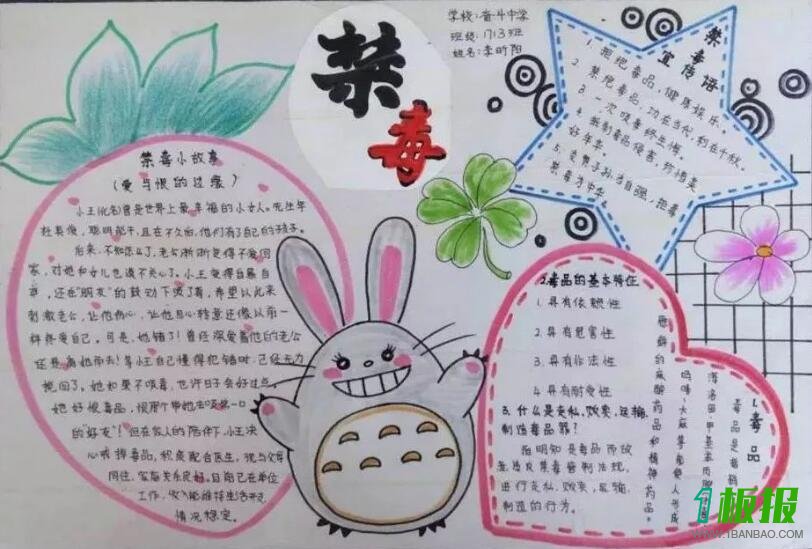 学校：奋斗中学
班级：1713班
姓名：李昕阳
禁毒
禁毒小故事
（爱与恨的边缘）
小王（化名）曾是世界上最幸福的小女人。先生年
轻英俊，聪明能干，且在不久后，他们有了自己的孩子。
后来，不知怎么了，老公渐渐变得不爱回
家，对她和女儿也漠不关心了。小王觉得自暴自
弃，还在“朋友”的鼓动下吸了毒，希望以此来
刺激老公，让他伤心，让他回心转意还像以前一
样疼爱自己。可是，她错了！曾经深爱着她的老公
还是离她而去！等小王自己懂得犯错时，已经无力
挽回了。她如果不吸毒，也许日子会好过点。
她好恨毒品，恨那个带她去吸第一口
的“好友”！但在家人的陪伴下，小王决
心戒掉毒品，积极配合医生，现与父母
同住，家庭关系良好。且期已在单位
工作，收入能维持生活开支
情况稳定。
禁毒宣传语
1. 拒绝毒品，健康娱乐。
2. 禁绝毒品，功在当代，利在千秋。
3. 一次吸毒终生悔。
4. 抵制毒品侵害，珍惜美
好年华。
5. 炎黄子孙当自强，拒毒
禁毒为中华。
1. 毒品
毒品是指鸦片
吗啡、大麻
瘾癖的麻醉药品和精神药品。
2. 毒品的基本特征
1. 具有依赖性
2. 具有危害性
3. 具有非法性
4. 具有耐受性
3. 什么是走私、贩卖、运输、
制造毒品罪？
指明知是毒品而故
意违反禁毒管制法规，
进行走私、贩卖、运输、
制造的行为。
1板报
WWW.1BANBAO.COM